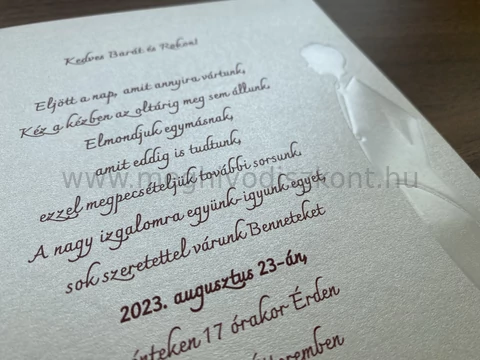 Kedves Barát és Rokon!
Eljött a nap, amit annyira vártunk,
Kéz a kézben az oltárig meg sem állunk.
Elmondjuk egymásnak,
amit eddig is tudtunk,
www.meghivodiszkont.hu
ezzel megpecsételjük további sorsunk.
A nagy izgalomra együnk-igyunk egyet,
sok szeretettel várunk Benneteket
2023. augusztus 23-án,
17 órakor Érden